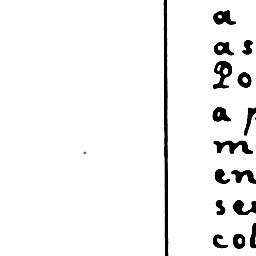 a
as
Po
a
m
en
se
col